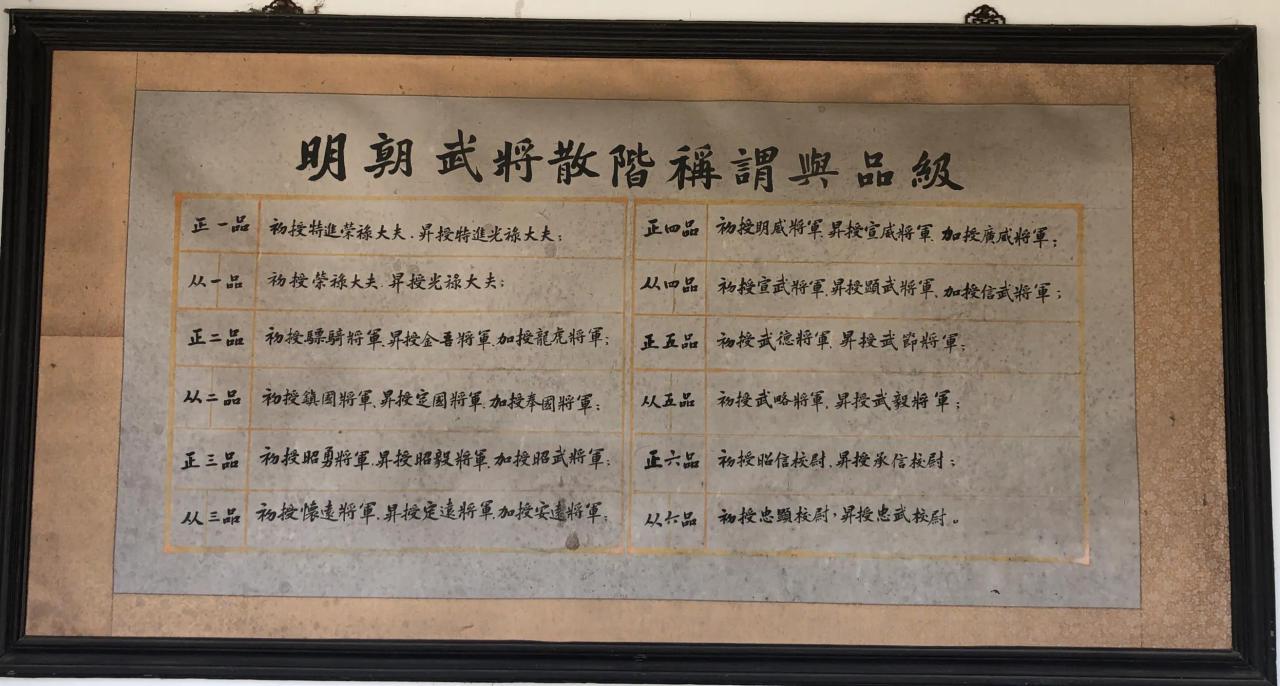 明朝武將散階稱謂與品級
正一品 初授特進榮祿大夫.昇授特進光祿大夫;
从一品 初授榮祿大夫.昇授光祿大夫;
正二品 初授驃騎將軍.昇授金吾將軍.加授龍虎將軍;
从二品 初授鎮國將軍、昇授定國將軍、加授奉國將軍;
正三品 初授昭勇將軍.昇授昭毅將軍.加授昭武將軍;
从三品 初授懷遠將軍.昇授定遠將軍.加授安遠將軍;
正四品 初授明威將軍.昇授宣威將軍.加授廣威將軍;
从四品 初授宣武將軍、昇授顯武將軍、加授信武將軍;
正五品 初授武德將軍、昇授武節將軍;
从五品 初授武略將軍、昇授武毅將軍;
正六品 初授昭信校尉、昇授承信校尉;
从六品 初授忠顯校尉,昇授忠武校尉。